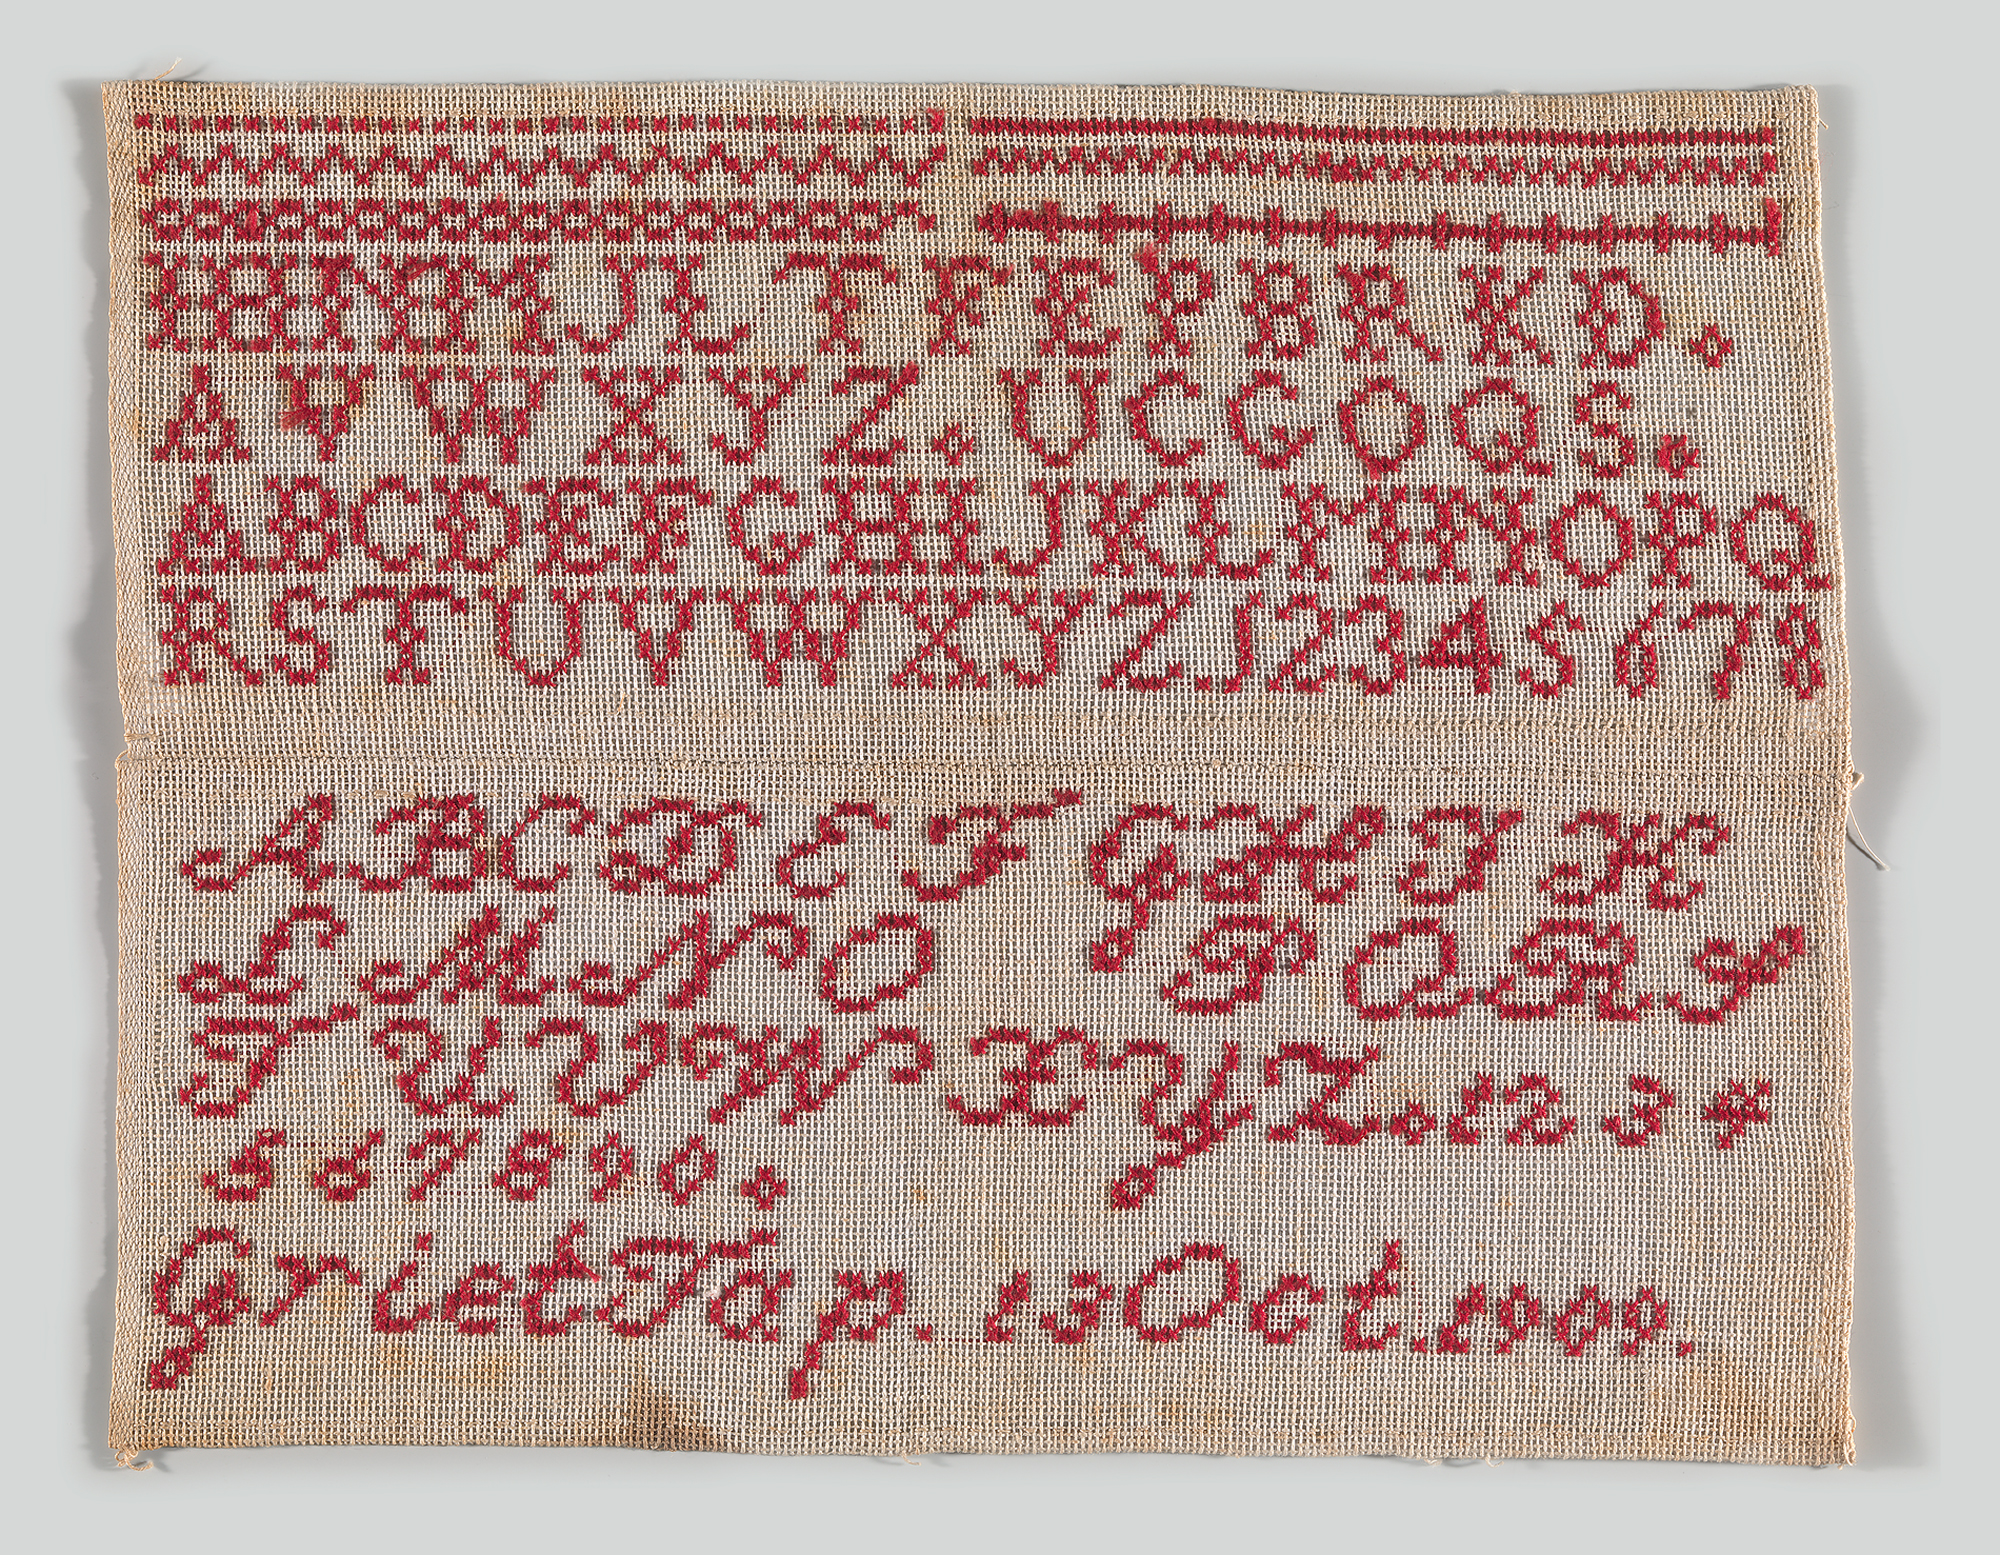 I H N M J L T F E P B R K D .
A V W X Y Z . U C G O Q S .
A B C D E F G H I J K L M N O P Q
R S T U V W X Y Z 1 2 3 4 5 6 7 8
A B C D E F G H I K
L M N O P Q R S
T U V W X Y Z . 1 2 3 4
5 6 7 8 9 0 .
Griet Tap. 13 Oct. 1909.